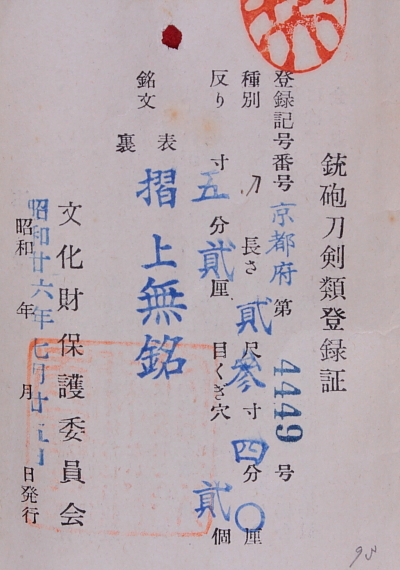 銃砲刀剣類登録証
登録記号番号 京都府 第 4449 号
種別 刀 長さ 貳尺参寸四分〇厘
反り 寸五分貳厘 目くぎ穴 貳個
銘文 表 摺上無銘
裏
文化財保護委員会
昭和廿六年七月廿五日
昭和 年 月 日発行